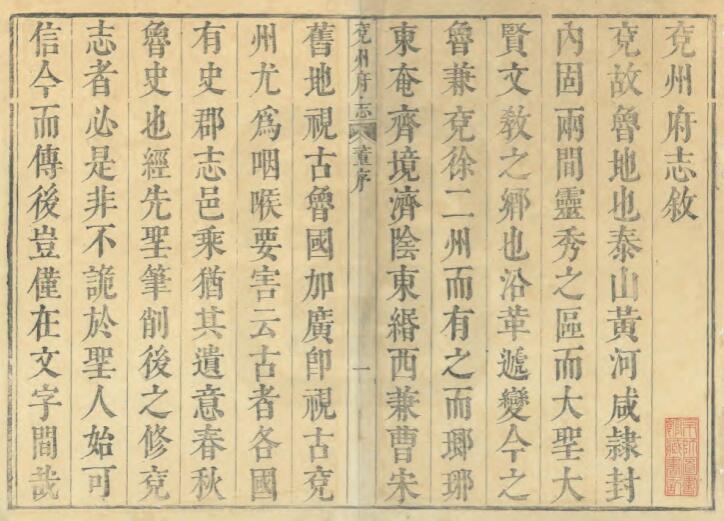 兗州府志敘
兗故魯地也泰山黃河咸隸封
內固兩間靈秀之區而大聖大
賢文敎之鄉也沿革遞變今之
魯兼兗徐二州而有之而瑯琊
東奄齊境濟陰東緡西兼曹宋
兗州府志
董序
一
舊地視古魯國加廣卽視古兗
州尤爲咽喉要害云古者各國
有史郡志邑乘猶其遺意春秋
魯史也經先聖筆削後之修兗
志者必是非不詭於聖人始可
信今而傳後豈僅在文字間哉